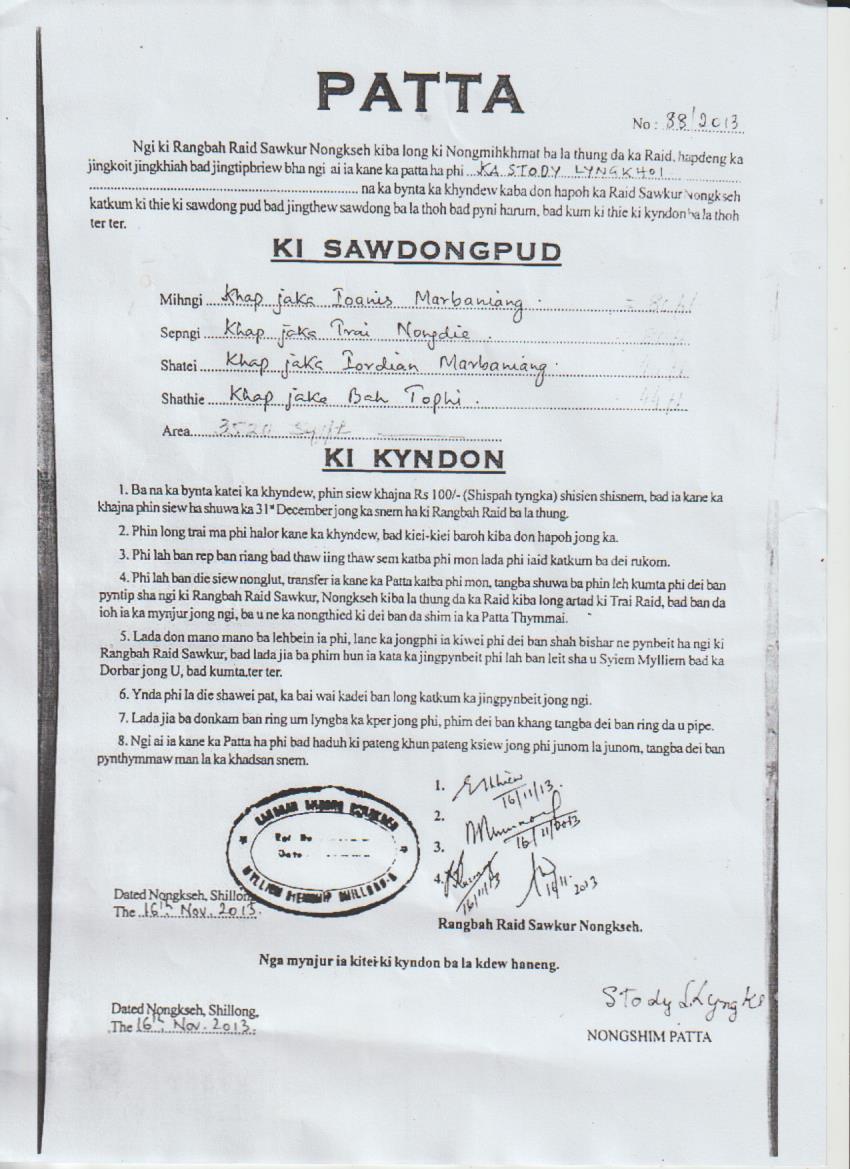 PATTA
No : 88/2013
Ngi ki Rangbah Raid Sawkur Nongkseh kiba long ki Nongmihkhmat ba la thung da ka Raid, hapdeng ka
jingkoit jingkhiah bad jingtipbriew bha ngi ai ia kane ka patta ha phi ...KA STODY LYNGKHOI
na ka bynta ka khyndew kaba don hapoh ka Raid Sawkur Nongkseh
katkum ki thie ki sawdong pud bad jingthew sawdong ba la thoh bad pyni harum, bad kum ki thie ki kyndon ba la thoh
ter ter.
KI SAWDONGPUD
Mihngi ... Khap jaka Ioanis Marbaniang.
Sepngi ... Khap jaka Trai Nongdie.
Shatei ... Khap jaka Iordian Marbaniang.
Shathie ... Khap jaka Bah Tophi. 44 ft
Area... 3520 Sq/ft
KI KYNDON
1. Ba na ka bynta katei ka khyndew, phin siew khajna Rs 100/- (Shispah tyngka) shisien shisnem, bad ia kane ka
khajna phin siew ha shuwa ka 31st December jong ka snem ha ki Rangbah Raid ba la thung.
2. Phin long trai ma phi halor kane ka khyndew, bad kiei-kiei baroh kiba don hapoh jong ka.
3. Phi lah ban rep ban riang bad thaw iing thaw sem katba phi mon lada phi iaid katkum ba dei rukom.
4. Phi lah ban die siew nonglut, transfer ia kane ka Patta katba phi mon, tangba shuwa ba phin leh kumta phi dei ban
pyntip sha ngi ki Rangbah Raid Sawkur, Nongkseh kiba la thung da ka Raid kiba long artad ki Trai Raid, bad ban da
ioh ia ka mynjur jong ngi, ba u ne ka nongthied ki dei ban da shim ia ka Patta Thymmai.
5. Lada don mano mano ba lehbein ia phi, lane ka jongphi ia kiwei phi dei ban shah bishar ne pynbeit ha ngi ki
Rangbah Raid Sawkur, bad lada jia ba phim hun ia kata ka jingpynbeit phi lah ban leit sha u Syiem Mylliem bad ka
Dorbar jong U, bad kumta ter ter.
6. Ynda phi la die shawei pat, ka bai wai kadei ban long katkum ka jingpynbeit jong ngi.
7. Lada jia ba donkam ban ring um lyngba ka kper jong phi, phim dei ban khang tangba dei ban ring da u pipe.
8. Ngi ai ia kane ka Patta ha phi bad haduh ki pateng khun pateng ksiew jong phi junom la junom, tangba dei ban
pynthymmaw man la ka khadsan snem.
1. 16/11/13.
2. 16/11/2013
3.
4. 16/11/13 16/11. 2013
Ref No
Date
Dated Nongkseh, Shillong
The 16th Nov. 2013.
Rangbah Raid Sawkur Nongkseh.
Nga mynjur ia kitei ki kyndon ba la kdew haneng.
Stody
Dated Nongkseh, Shillong,
The 16th Nov. 2013.
NONGSHIM PATTA